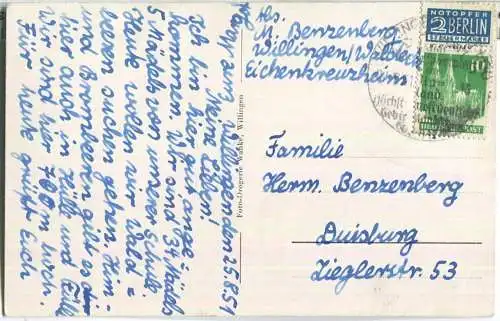 Abs.
M. Benzenberg
Willingen/Waldeck
Eichenkreuzheim
NOTOPFER
2 BERLIN
STEUERMARKE
10
DEUTSCHE POST
Familie
Herm. Benzenberg
Duisburg
Zieglerstr. 53
Foto-Drogerie Wahle, Willingen
Willingen den 25.8.51
Meine Lieben!
Ich bin hier gut ange=
kommen. Wir sind 34 Mädels
5 Mädels von unserer Schule.
Heute wollen wir Wald=
beeren suchen gehen. Him=
und Brombeeren gibt es
hier auch in Hülle und Fülle
Wir sind hier 700 m hoch.
Für heute grüßt Euch